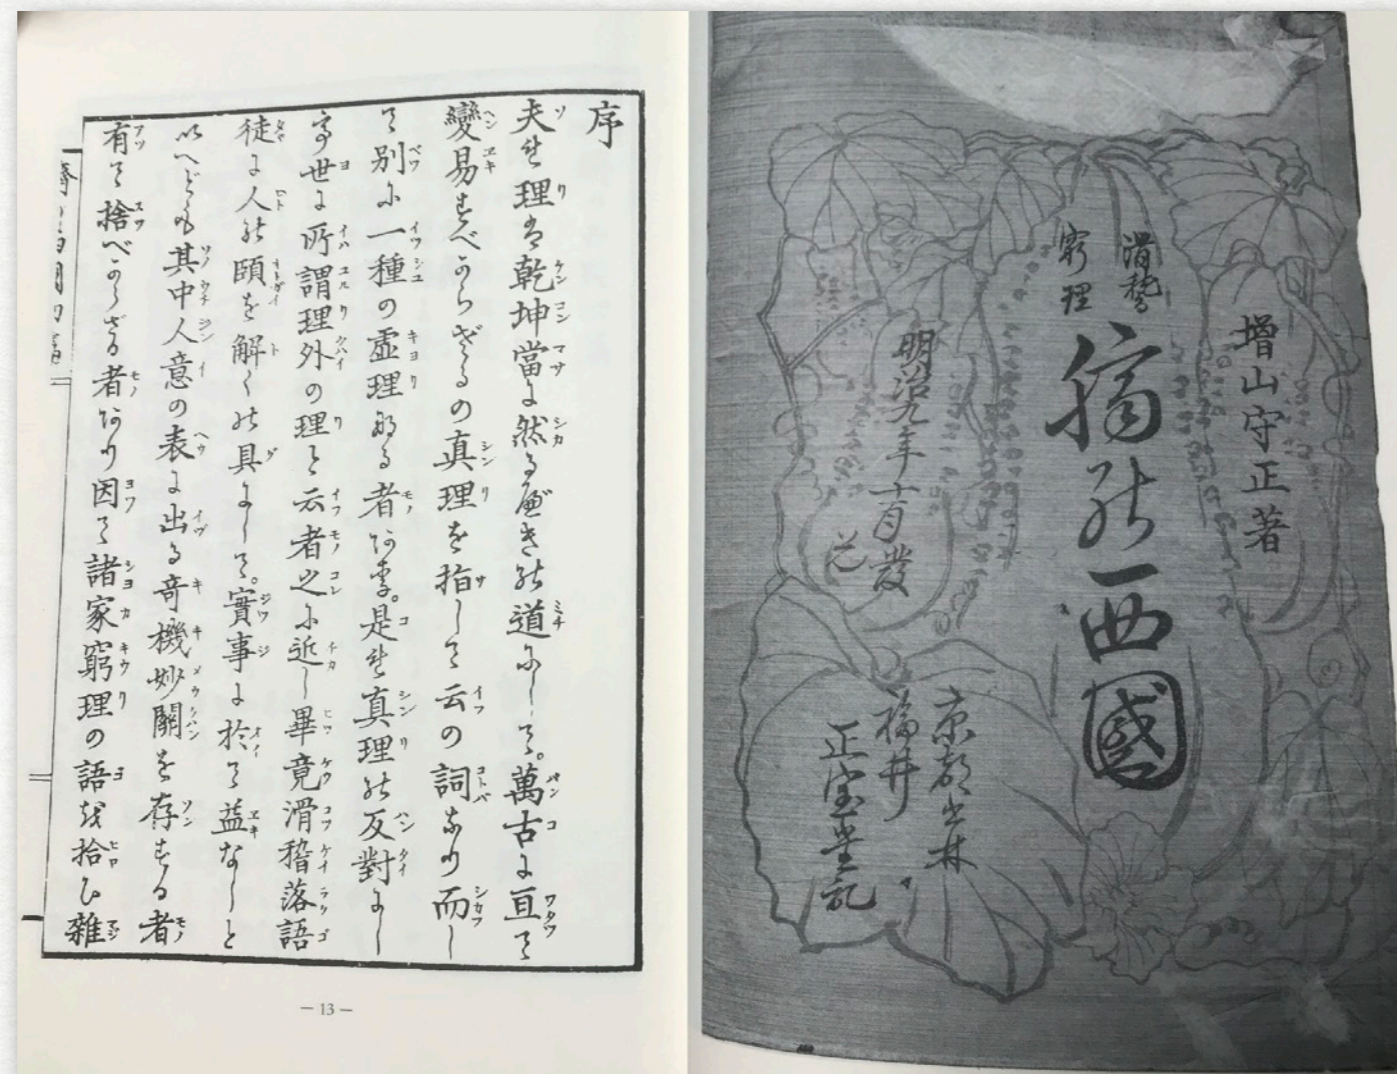 増山守正著
滑稽
窮理
臍の西國
京都書林
福井
明治九年
發兌
正宝堂記
序
夫れ理は乾坤當に然るべきの道にして。萬古に亘て
變易すべからざるの真理を指して云の詞なり而し
て別に一種の虚理なる者あり。是れ真理の反對にし
て世に所謂理外の理と云者之に近し畢竟滑稽落語
徒に人の頤を解くの具にして。實事に於て益なしと
いへども其中人意の表に出る竒機妙關を存する者
有て捨べからざる者あり因て諸家窮理の語を拾ひ雜
— 13 —